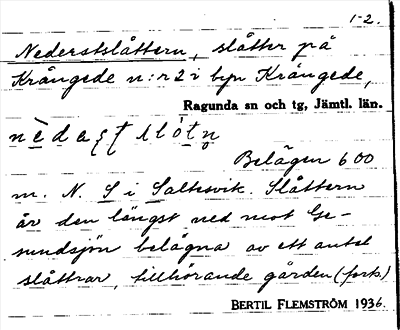 1-2.
Nederstslåttern, slåtter på
Krångede n:r 2 i byn Krångede,
Ragunda sn och tg, Jämtl. län.
Belägen 600
m. N. S i Saltsvik. Slåttern
är den längst ned mot Ge-
sundsjön belägna av ett antal
slåttrar, tillhörande gården (forts.)
BERTIL FLEMSTRÖM 1936.